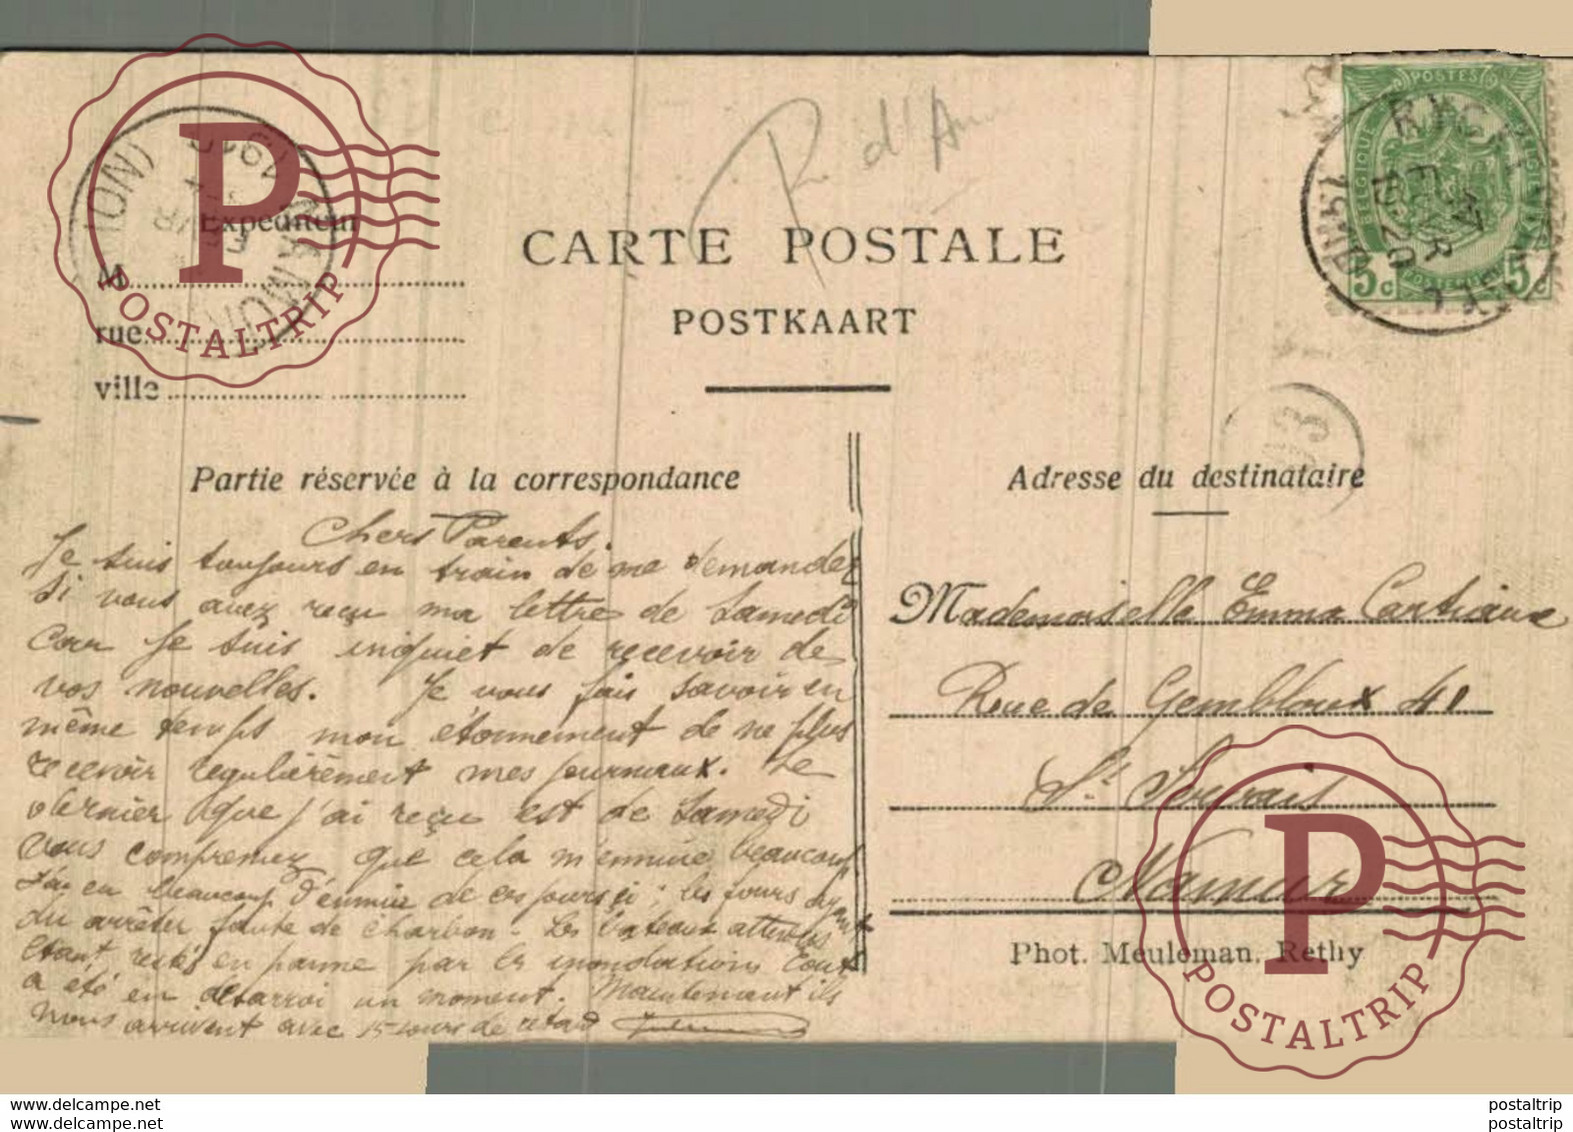 R. d'An
CARTE POSTALE
POSTKAART
Expéditeur
M
rue
ville
NAMUR
POSTES
BELGIQUE
BELGIË
5c 5c
RYCKEVORSEL
Partie réservée à la correspondance
Chers Parents.
Je suis toujours en train de me demander
si vous avez reçu ma lettre de Samedi
car je suis inquiet de recevoir de
vos nouvelles. Je vous fais savoir en
même temps mon étonnement de ne plus
recevoir regulièrement mes journaux. Le
dernier que j'ai reçu est de Samedi
vous comprenez que cela m'ennuie beaucoup
J'ai eu beaucoup d'ennuis de ces jours ci; les fours ayant
du arrêter faute de charbon. Les bateaux attendus
étant restés en panne par les inondations Tout
a été en désarroi un moment. Maintenant ils
nous arrivent avec 15 jours de retard
Adresse du destinataire
Mademoiselle Emma Cartiaux
Rue de Gembloux 41
St. Servais
Namur
Phot. Meuleman, Rethy
P
POSTALTRIP
P
POSTALTRIP
own-us.delcampe.net
own-us.delcampe.net
postaltrip
postaltrip